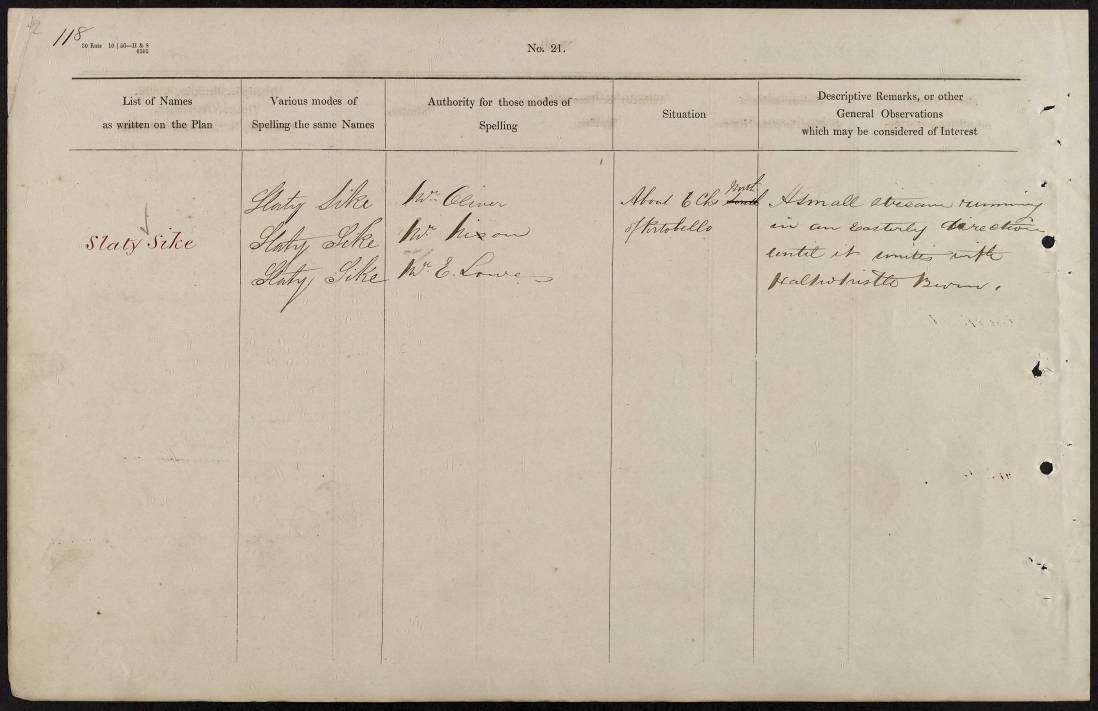 118
No. 21.
List of Names
as written on the Plan
Various modes of
Spelling the same Names
Authority for those modes of
Spelling
Situation
Descriptive Remarks, or other
General Observations
which may be considered of Interest
Slaty Sike
Slaty Sike
Slaty Sike
Slaty Sike
Mr. Oliver
Mr. Nixon
Mr. E. Lowes
About 6 Chs North south
of Portobello
A small stream running
in an Easterly direction
until it unites with
Haltwhistle Burn.